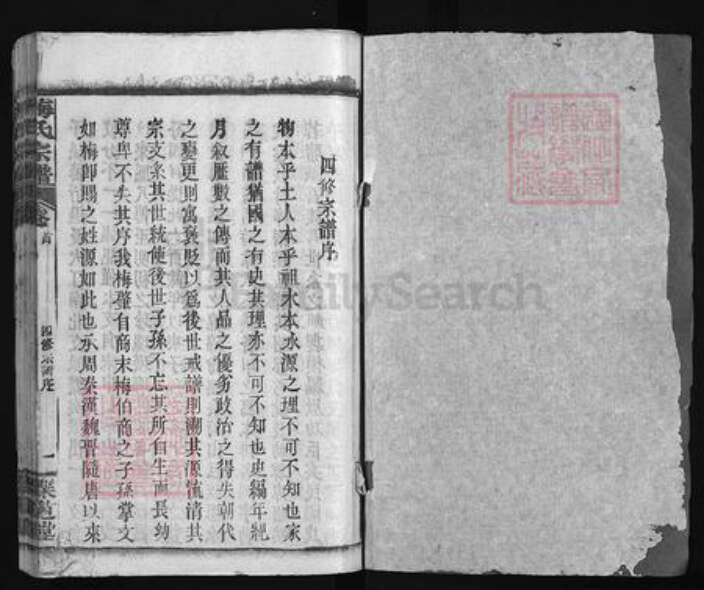 四修宗譜序
物本乎土人本乎祖水木本源之理不可不知也家
之有譜猶國之有史其理亦不可不知也史編年紀
月叙歷數之傳而其人品之優劣政治之得失朝代
之變更則寓褒貶以爲後世戒譜則溯其源流清其
宗支糸其世統使後世子孫不忘其所自生而長幼
尊卑不失其序我梅肇自商末梅伯商之子孫掌文
如梅卽賜之姓源如此也承周秦漢魏晉隨唐以來
梅氏宗譜 卷首 四修宗譜序 一
FamilySearch